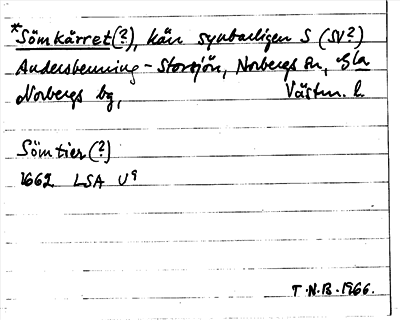 *Sömkärret (?), kärr synbarligen S (SV?)
Andersbenning - Storsjön, Norbergs sn, Gla
Norbergs bg, Västm. l.
Sömtier (?)
1662 LSA U9
T.N.B. 1966.